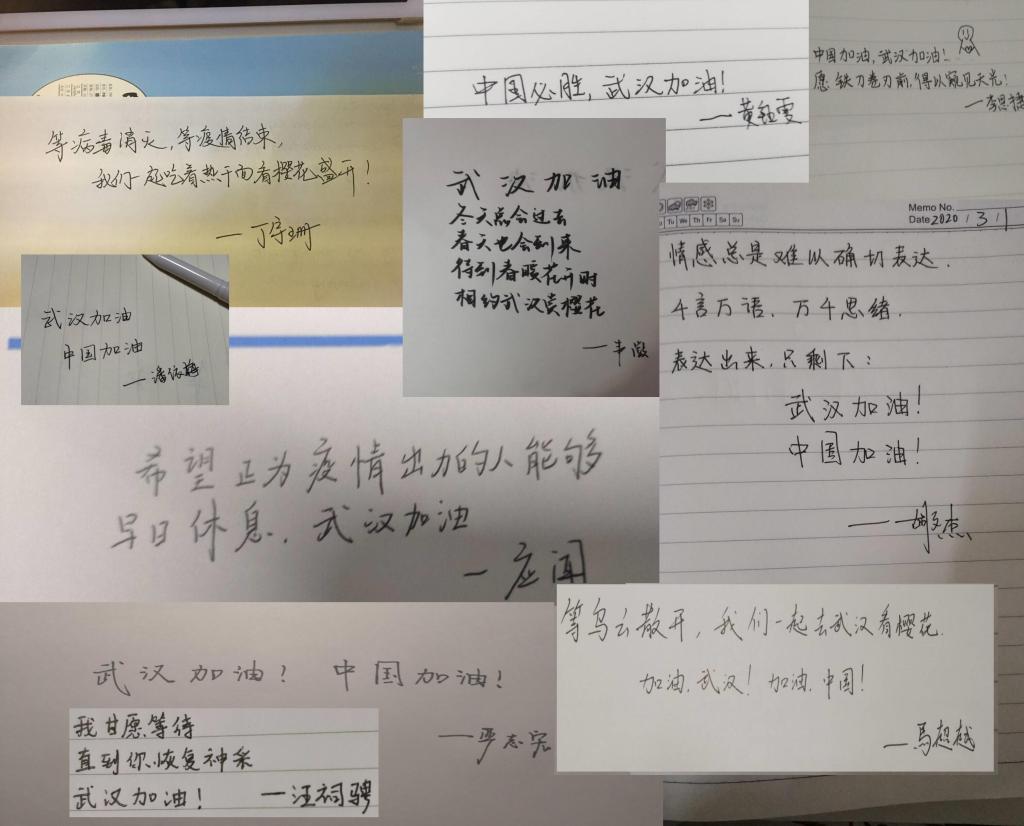 等病毒消灭,等疫情结束,
我们一起吃着热干面看樱花盛开!
—丁宇珊
中国必胜,武汉加油!
—黄钰雯
中国加油,武汉加油!
愿铁刀卷刃前,得以窥见天光!
—李思
武汉加油
冬天总会过去
春天也会到来
待到春暖花开时
相约武汉赏樱花
—丰
武汉加油
中国加油
—潘依
Memo No.
Tu We Th Fr Sa Su
Date 2020 / 3 /
情感总是难以确切表达.
千言万语,万千思绪.
表达出来,只剩下:
武汉加油!
中国加油!
杰
希望正为疫情出力的人能够
早日休息.武汉加油
—应闻
武汉加油! 中国加油!
—严志宏
我甘愿等待
直到你恢复神采
武汉加油! —汪祠骋
等乌云散开,我们一起去武汉看樱花.
加油.武汉!加油.中国!
—馬超越